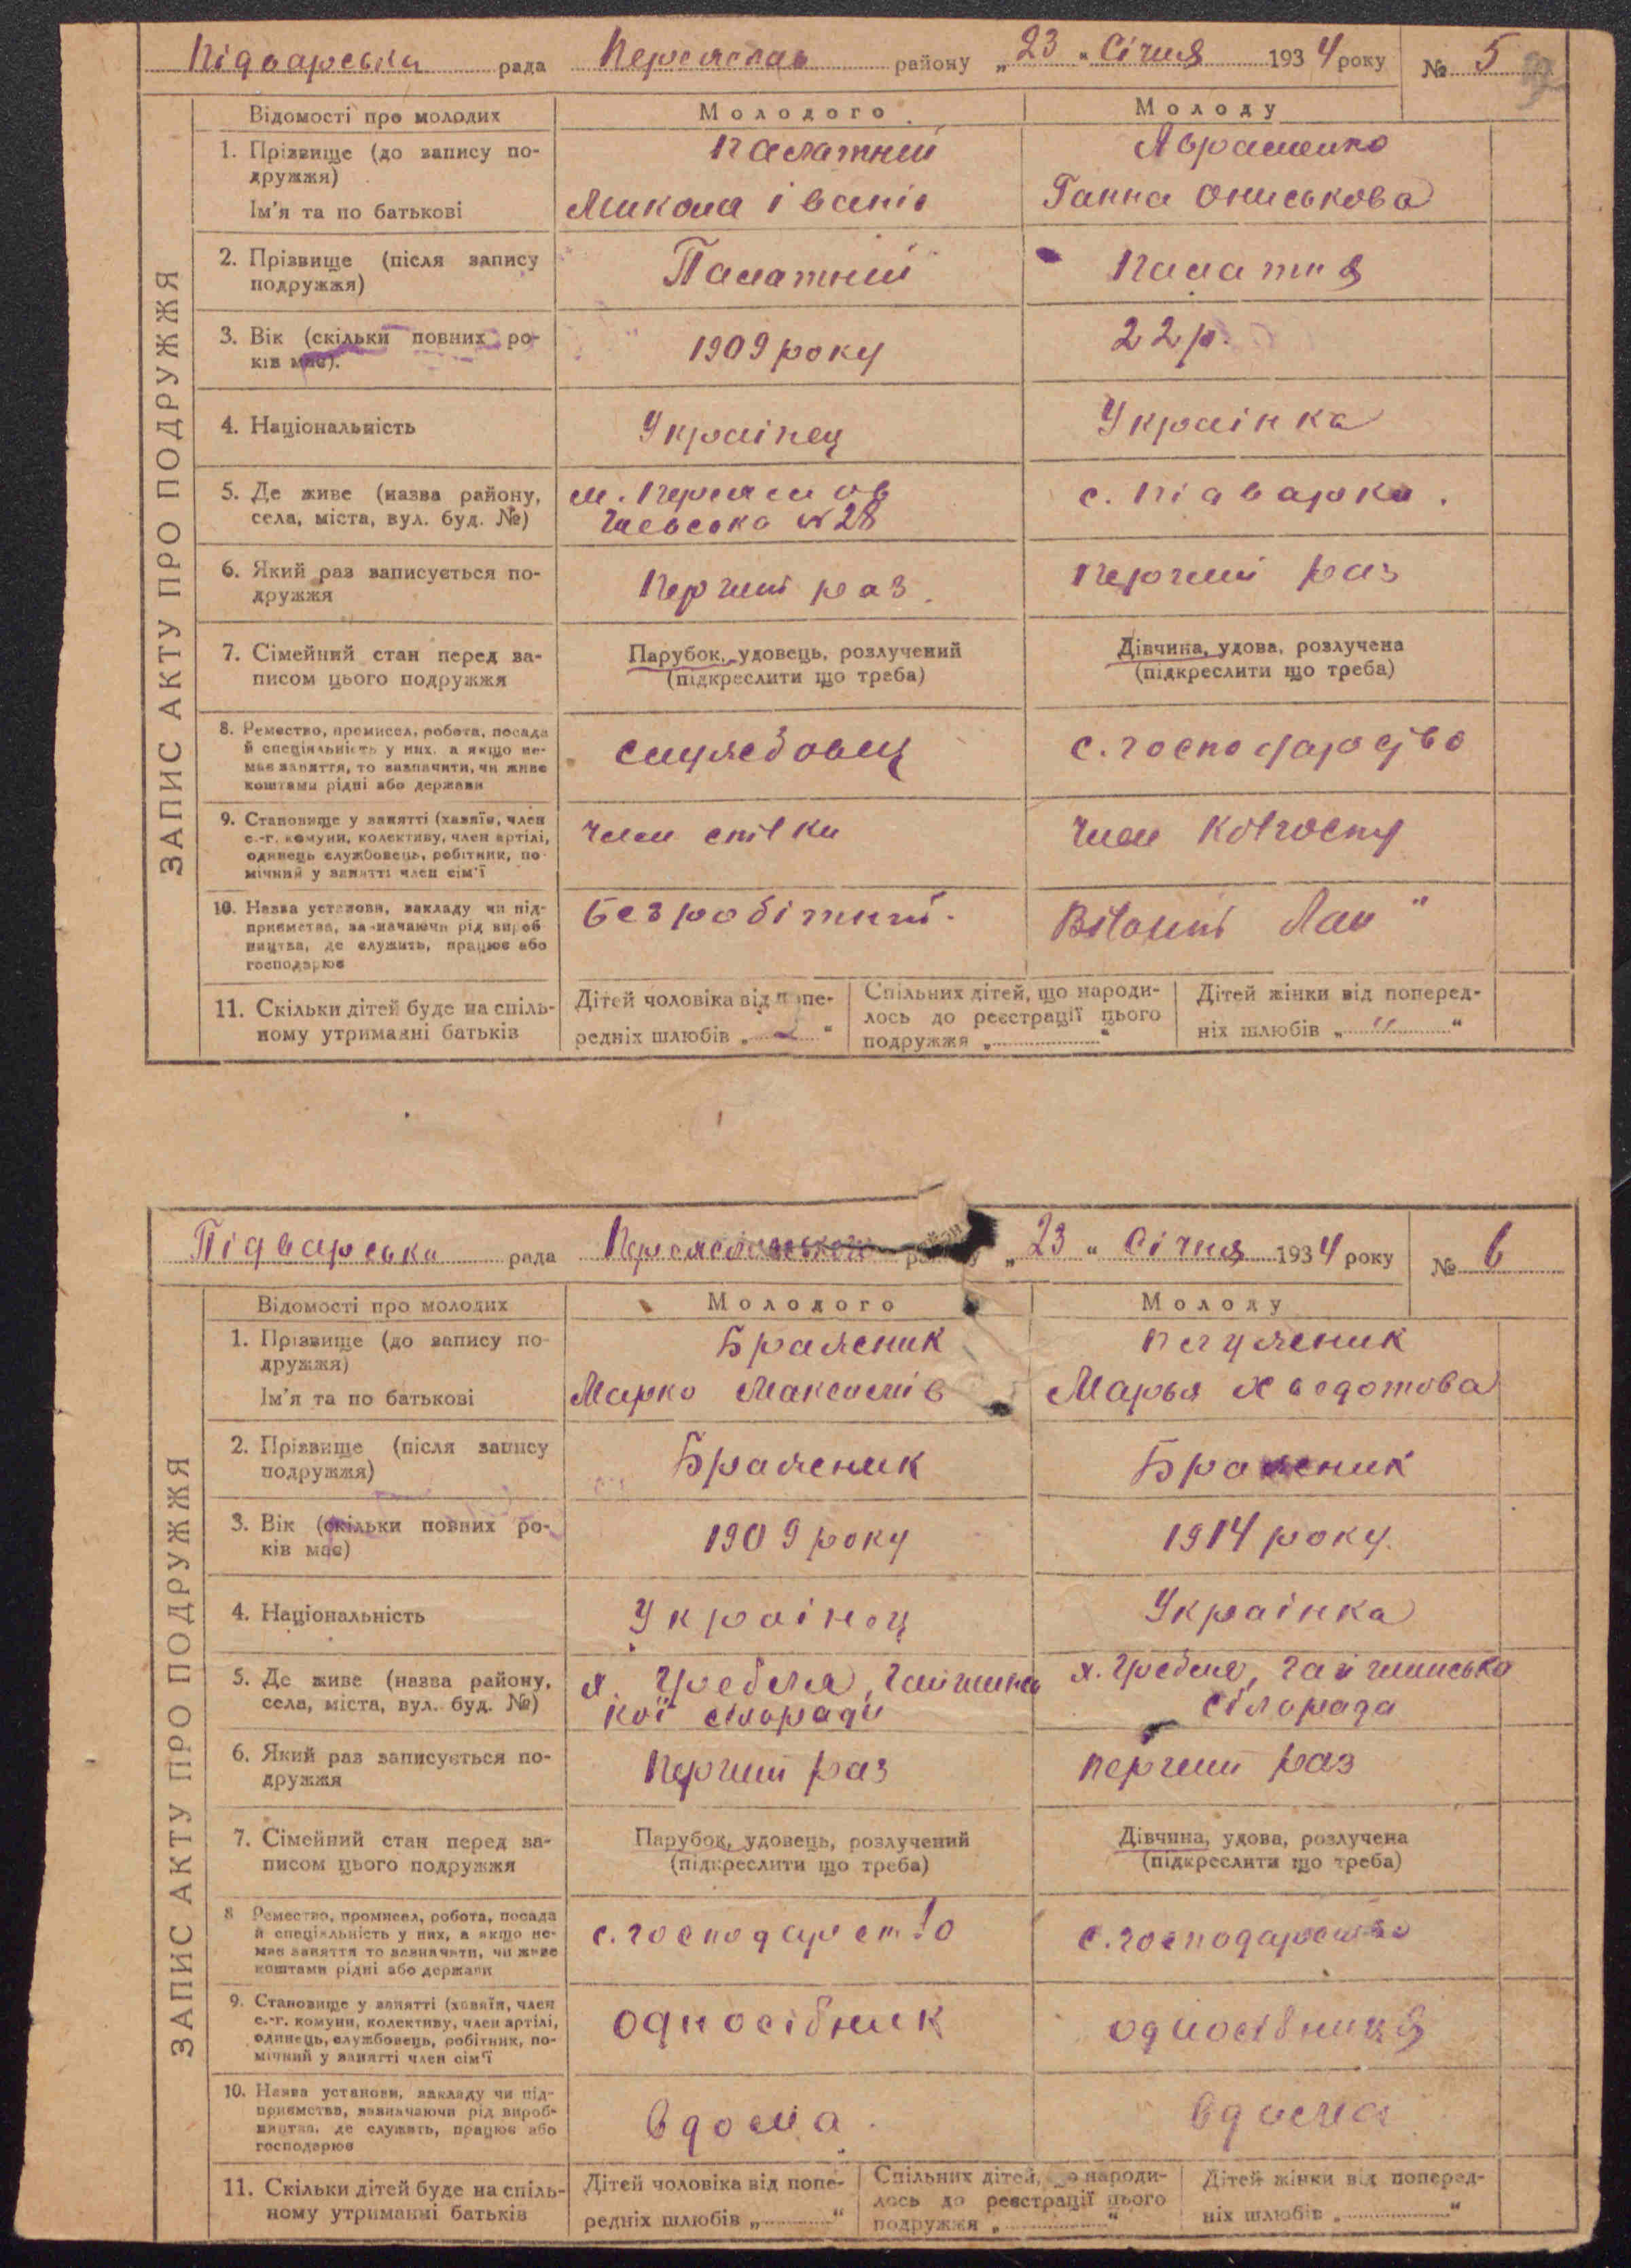 Підварська рада Переяслав району „23" Січня 1934 року № 5
ЗАПИС АКТУ ПРО ПОДРУЖЖЯ
Відомості про молодих Молодого Молоду
1. Прізвище (до запису по- Палатний Авраменко
дружжя)
Ім'я та по батькові Микола Іванів Ганна Ониськова
2. Прізвище (після запису Палатний Палатня
подружжя)
3. Вік (скільки повних ро- 1909 року 22 р.
ків має).
4. Національність Українец Українка
5. Де живе (назва району, м. Переяслов с. Підварки.
села, міста, вул. буд. №) № 28
6. Який раз записується по- Перший раз. Перший раз
дружжя
7. Сімейний стан перед за- Парубок, удовець, розлучений Дівчина, удова, розлучена
писом цього подружжя (підкреслити що треба) (підкреслити що треба)
8. Ремество, промисел, робота, посада
й спеціяльність у них, а якщо не- службовец с. господарство
має заняття, то зазначити, чи живе
коштами рідні або держави
9. Становище у занятті (хазяїн, член член спілки член колгоспу
с.-г. комуни, колективу, член артілі,
одинець службовець, робітник, по-
мічний у занятті член сім'ї
10. Назва установи, закладу чи під- Безробітний. Вільний Лан"
приємства, зазначаючи рід вироб-
ництва, де служить, працює або
господарює
11. Скільки дітей буде на спіль- Дітей чоловіка від попе- Спільних дітей, що народи- Дітей жінки від поперед-
ному утриманні батьків редніх шлюбів „ “ лось до реєстрації цього ніх шлюбів „ “
подружжя „ “
Підварська рада району „23" Січня 1934 року № 6
ЗАПИС АКТУ ПРО ПОДРУЖЖЯ
Відомості про молодих Молодого Молоду
1. Прізвище (до запису по- Бражник
дружжя)
Ім'я та по батькові Марко Максимів Марья Хведотова
2. Прізвище (після запису Бражник Бражник
подружжя)
3. Вік (скільки повних ро- 1909 року 1914 року.
ків має)
4. Національність Українец Українка
5. Де живе (назва району, х. Гребля, Гайшинсь х. Гребля, Гайшинська
села, міста, вул. буд. №) кої сілоради сілорада
6. Який раз записується по- Перший раз Перший раз
дружжя
7. Сімейний стан перед за- Парубок, удовець, розлучений Дівчина, удова, розлучена
писом цього подружжя (підкреслити що треба) (підкреслити що треба)
8 Ремество, промисел, робота, посада
й спеціяльність у них, а якщо не- с. господарство с. господарство
має заняття то зазначити, чи живе
коштами рідні або держави
9. Становище у занятті (хазяїн, член
с.-г. комуни, колективу, член артілі, односібник односібниця
одинець, службовець, робітник, по-
мічний у занятті член сім'ї
10. Назва установи, закладу чи під-
приємства, зазначаючи рід вироб- вдома. вдома
ництва, де служить, працює або
господарює
11. Скільки дітей буде на спіль- Дітей чоловіка від попе- Спільних дітей, що народи- Дітей жінки від поперед-
ному утриманні батьків редніх шлюбів „ “ лось до реєстрації цього ніх шлюбів „ “
подружжя „ “